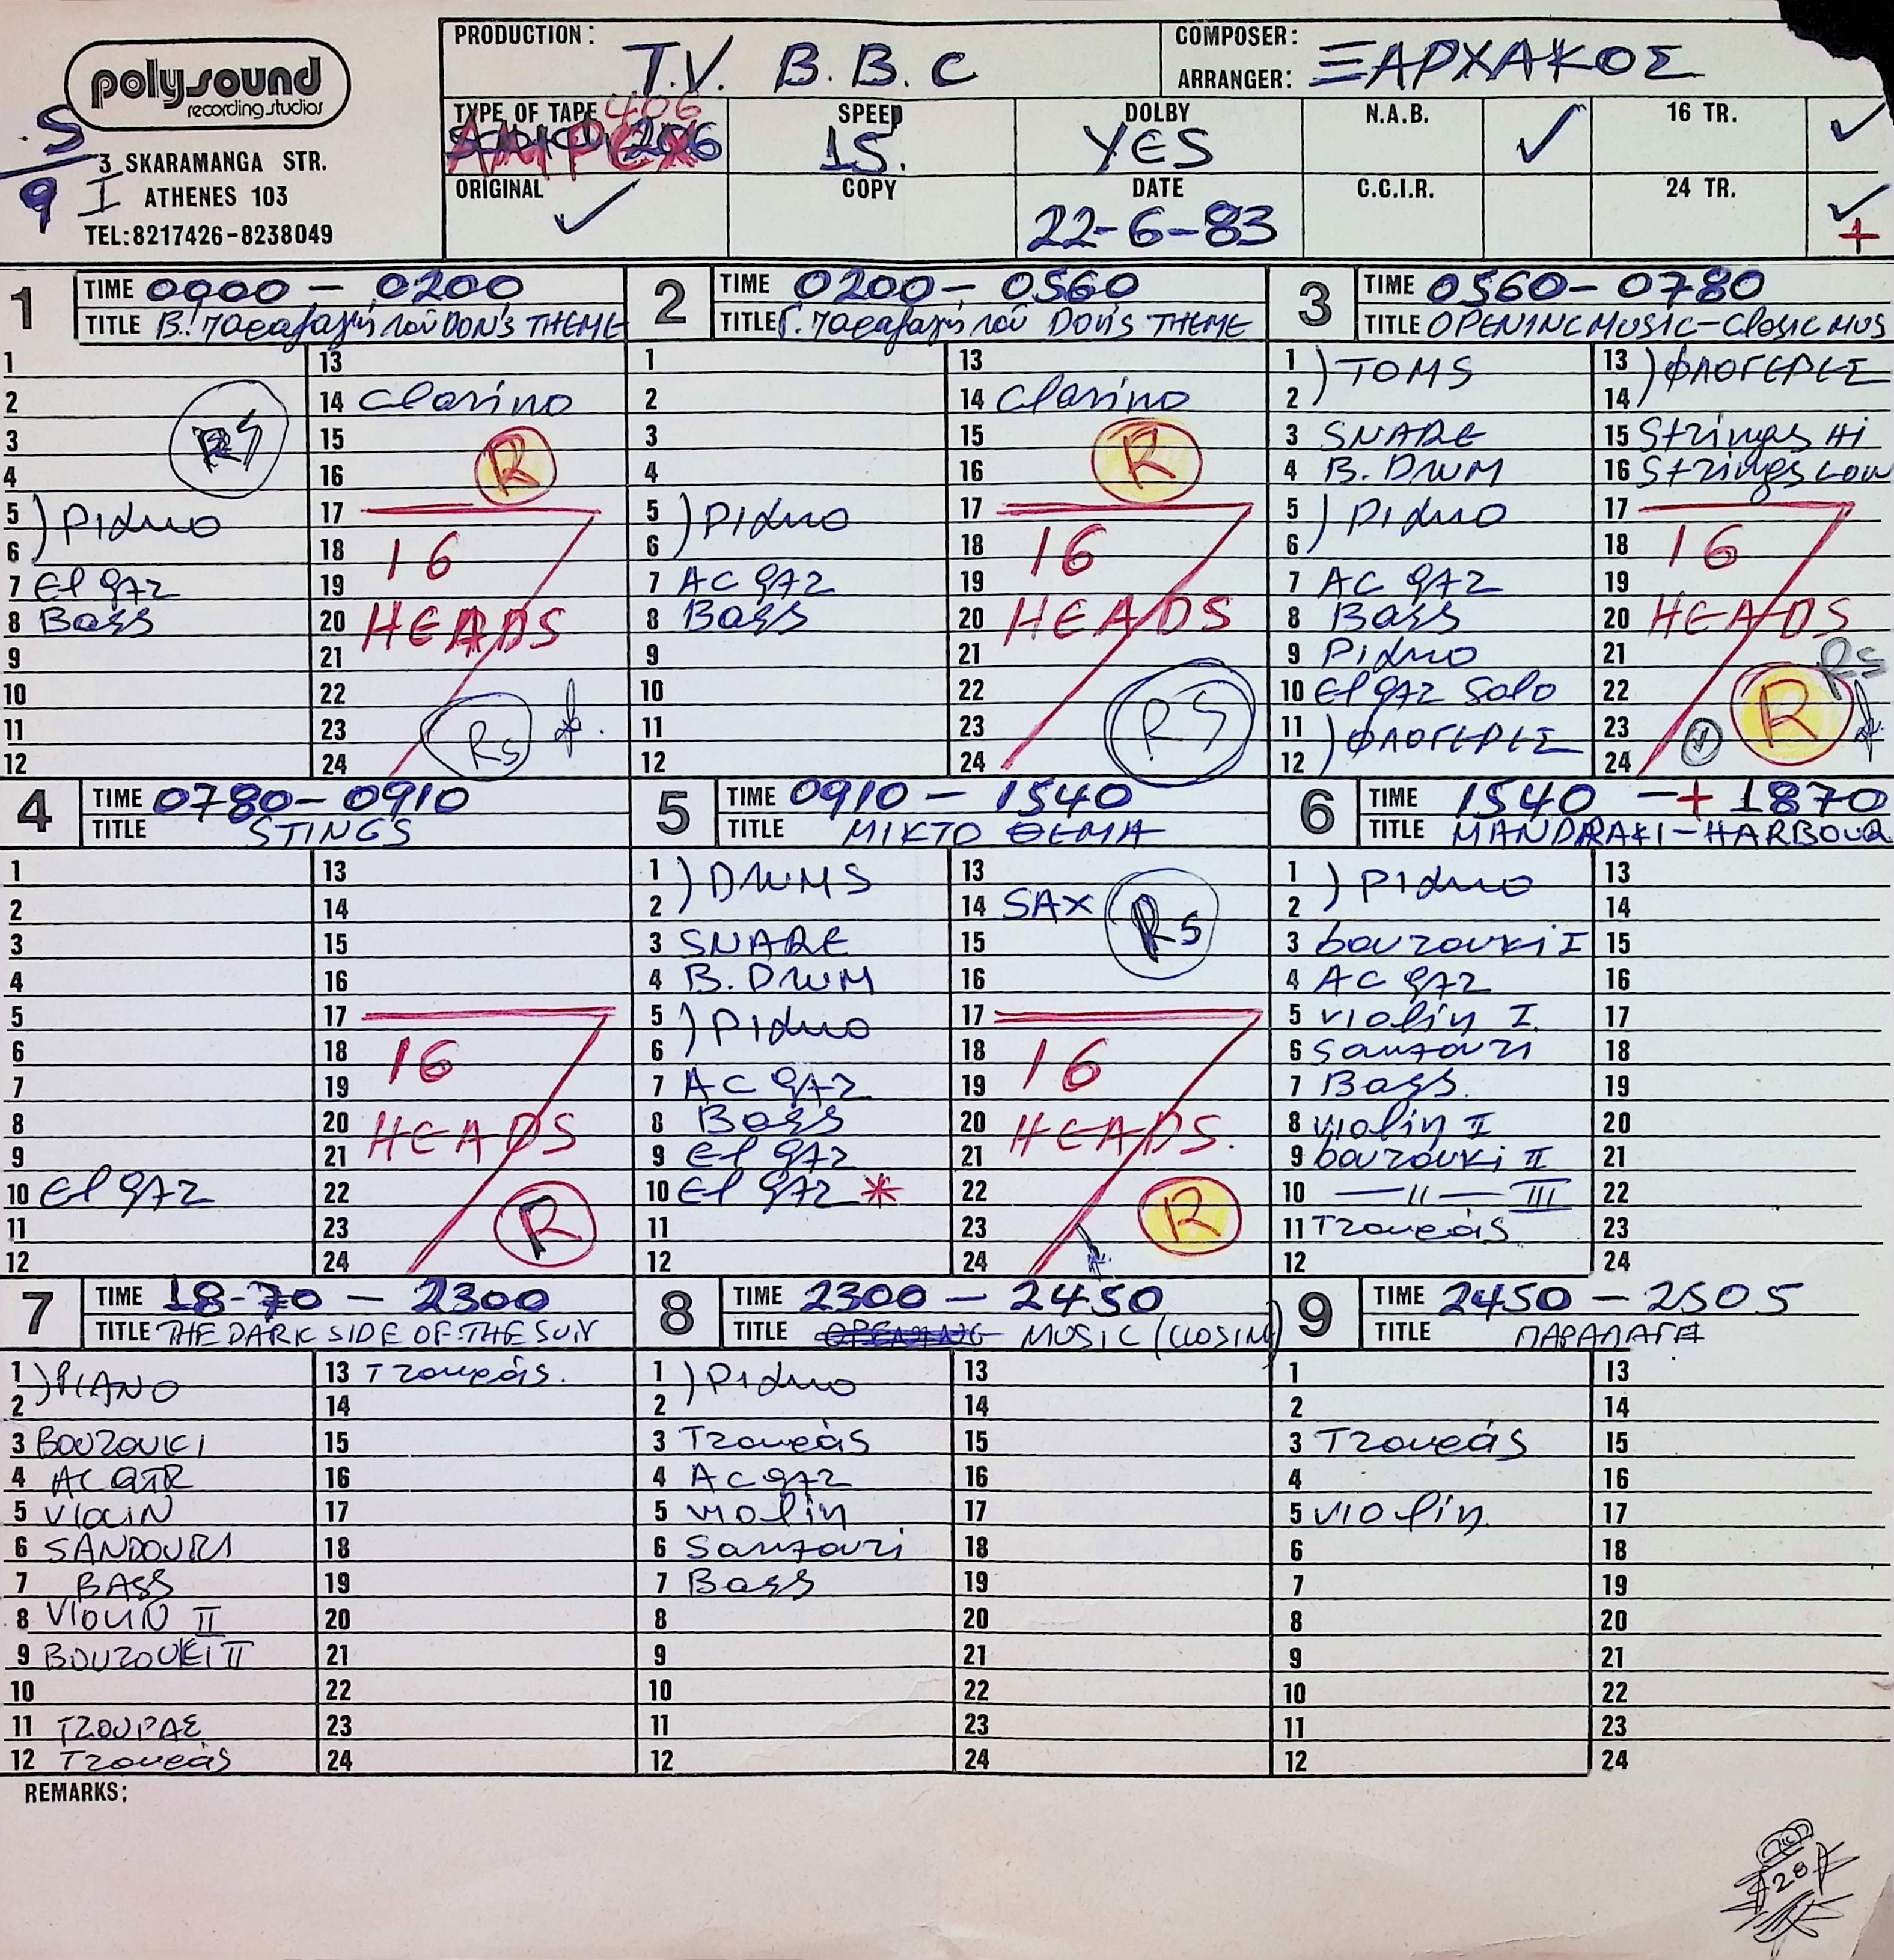 polysound
recording studios
3 SKARAMANGA STR.
ATHENES 103
TEL: 8217426-8238049
S
9 I
PRODUCTION: T.V. B.B.C
COMPOSER:
ARRANGER: ΞΑΡΧΑΚΟΣ
TYPE OF TAPE 406
AMPEX
SPEED 15.
DOLBY YES
N.A.B. ✓
16 TR. ✓
ORIGINAL ✓
COPY
DATE 22-6-83
C.C.I.R.
24 TR. ✓ +
1 TIME 0000 - 0200
TITLE Β! Παραλαγή τού DON'S THEME
1
2
3
4
5 ) Piano
6
7 El gtr
8 Bass
9
10
11
12
RS
13
14 Clarino
15
16
R
17
18 16
19
20 HEADS
21
22
23
24
RS
2 TIME 0200 - 0560
TITLE Γ. Παραλαγή τού DON'S THEME
1
2
3
4
5 ) Piano
6
7 AC gtr
8 Bass
9
10
11
12
13
14 Clarino
15
16
R
17
18 16
19
20 HEADS
21
22
23
24
RS
3 TIME 0560 - 0780
TITLE OPENING MUSIC - CLOSIC MUS
1 ) TOMS
2
3 SNARE
4 B. DRUM
5 ) Piano
6
7 AC gtr
8 Bass
9 Piano
10 El gtr Solo
11 ) ΦΛΟΓΕΡΕΣ
12
13 ) ΦΛΟΓΕΡΕΣ
14
15 Strings Hi
16 Strings Low
17
18 16
19
20 HEADS
21
22
23
24
RS
R
4 TIME 0780 - 0910
TITLE STINGS
1
2
3
4
5
6
7
8
9
10 El gtr
11
12
13
14
15
16
17
18 16
19
20 HEADS
21
22
23
24
R
5 TIME 0910 - 1540
TITLE ΜΙΚΤΟ ΘΕΜΑ
1 ) DRUMS
2
3 SNARE
4 B. DRUM
5 ) Piano
6
7 AC gtr
8 Bass
9 El gtr
10 El gtr *
11
12
13
14 SAX
15
16
RS
17
18 16
19
20 HEADS.
21
22
23
24
R
6 TIME 1540 - + 1870
TITLE MANDRAKI - HARBOUR
1 ) Piano
2
3 bouzouki I
4 AC gtr
5 violin I
6 Santouri
7 Bass.
8 violin II
9 bouzouki II
10 — 〃 — III
11 Τζουράς
12
13
14
15
16
17
18
19
20
21
22
23
24
7 TIME 18-70 - 2300
TITLE THE DARK SIDE OF THE SUN
1 ) PIANO
2
3 BOUZOUKI
4 AC GTR
5 VIOLIN
6 SANDOURI
7 BASS
8 VIOLIN II
9 BOUZOUKI II
10
11 ΤΖΟΥΡΑΣ
12 Τζουράς
13 Τζουράς.
14
15
16
17
18
19
20
21
22
23
24
8 TIME 2300 - 2450
TITLE OPENING MUSIC (CLOSING)
1 ) Piano
2
3 Τζουράς
4 AC gtr
5 violin
6 Santouri
7 Bass
8
9
10
11
12
13
14
15
16
17
18
19
20
21
22
23
24
9 TIME 2450 - 2505
TITLE ΠΑΡΑΛΑΓΗ
1
2
3 Τζουράς
4
5 violin.
6
7
8
9
10
11
12
13
14
15
16
17
18
19
20
21
22
23
24
REMARKS: